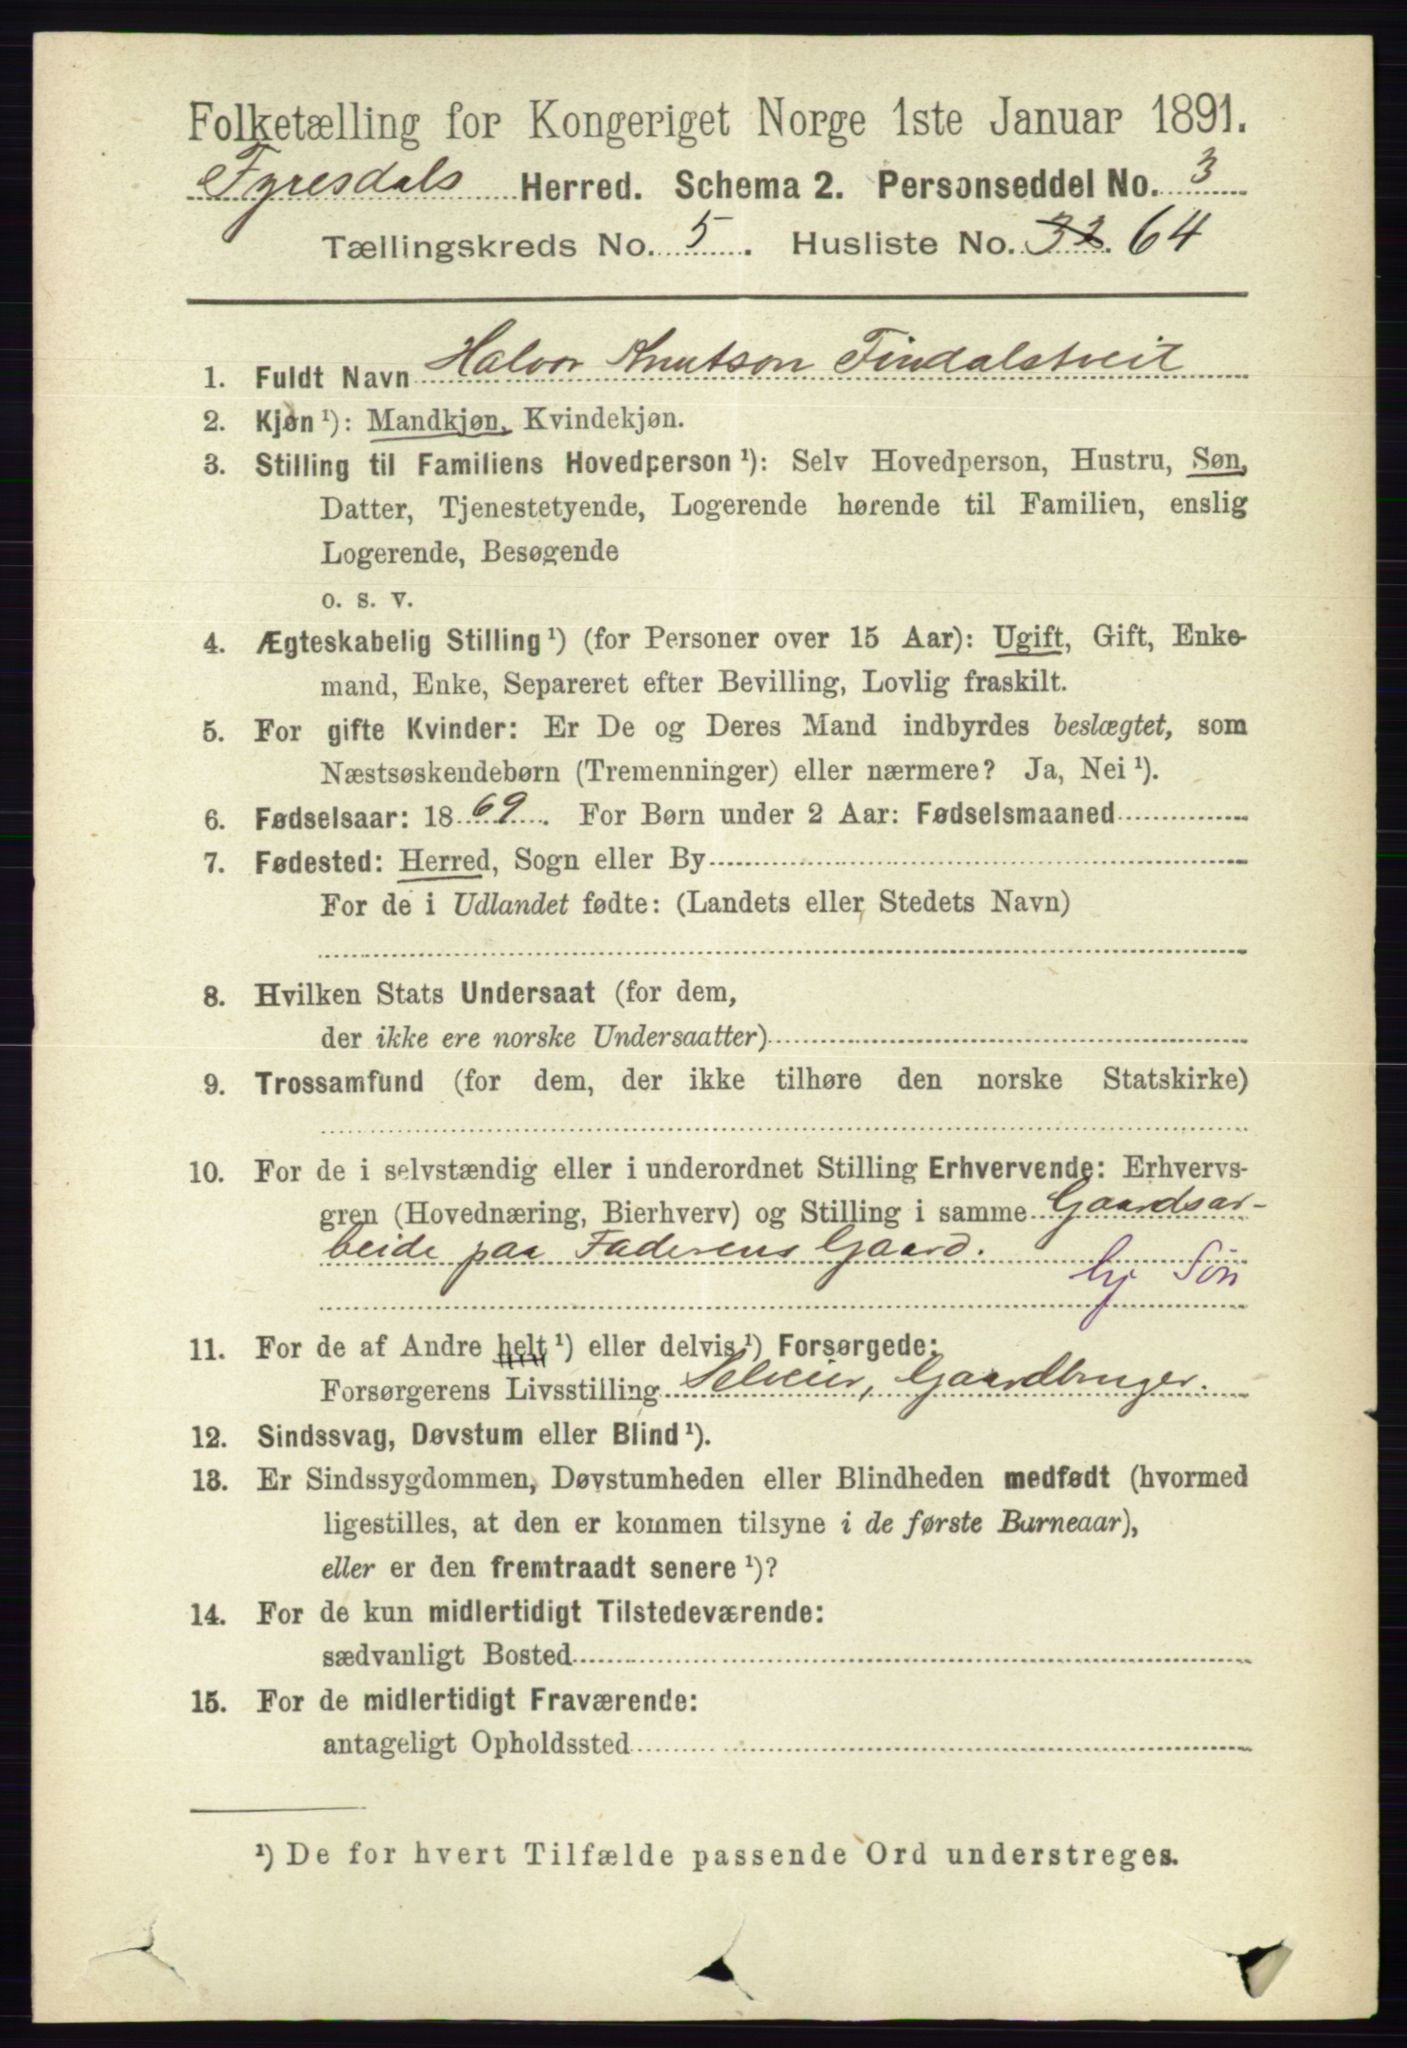 Folketælling for Kongeriget Norge 1ste Januar 1891.
Fyresdals Herred. Schema 2. Personseddel No. 3
Tællingskreds No. 5. Husliste No. 32. 64
1. Fuldt Navn Halvor Knutson Findalstveit
2. Kjøn¹): Mandkjøn, Kvindekjøn.
3. Stilling til Familiens Hovedperson¹): Selv Hovedperson, Hustru, Søn,
Datter, Tjenestetyende, Logerende hørende til Familien, enslig
Logerende, Besøgende
o. s. v.
4. Ægteskabelig Stilling¹) (for Personer over 15 Aar): Ugift, Gift, Enke-
mand, Enke, Separeret efter Bevilling, Lovlig fraskilt.
5. For gifte Kvinder: Er De og Deres Mand indbyrdes beslægtet, som
Næstsøskendebørn (Tremenninger) eller nærmere? Ja, Nei¹).
6. Fødselsaar: 1869. For Børn under 2 Aar: Fødselsmaaned
7. Fødested: Herred, Sogn eller By
For de i Udlandet fødte: (Landets eller Stedets Navn)
8. Hvilken Stats Undersaat (for dem,
der ikke ere norske Undersaatter)
9. Trossamfund (for dem, der ikke tilhøre den norske Statskirke)
10. For de i selvstændig eller i underordnet Stilling Erhvervende: Erhvervs-
gren (Hovednæring, Bierhverv) og Stilling i samme Gaardsar-
beide paa Faderens Gaard.
hj Søn
11. For de af Andre helt¹) eller delvis¹) Forsørgede:
Forsørgerens Livsstilling Selveier, Gaardbruger.
12. Sindssvag, Døvstum eller Blind¹).
13. Er Sindssygdommen, Døvstumheden eller Blindheden medfødt (hvormed
ligestilles, at den er kommen tilsyne i de første Barneaar),
eller er den fremtraadt senere¹)?
14. For de kun midlertidigt Tilstedeværende:
sædvanligt Bosted
15. For de midlertidigt Fraværende:
antageligt Opholdssted
¹) De for hvert Tilfælde passende Ord understreges.